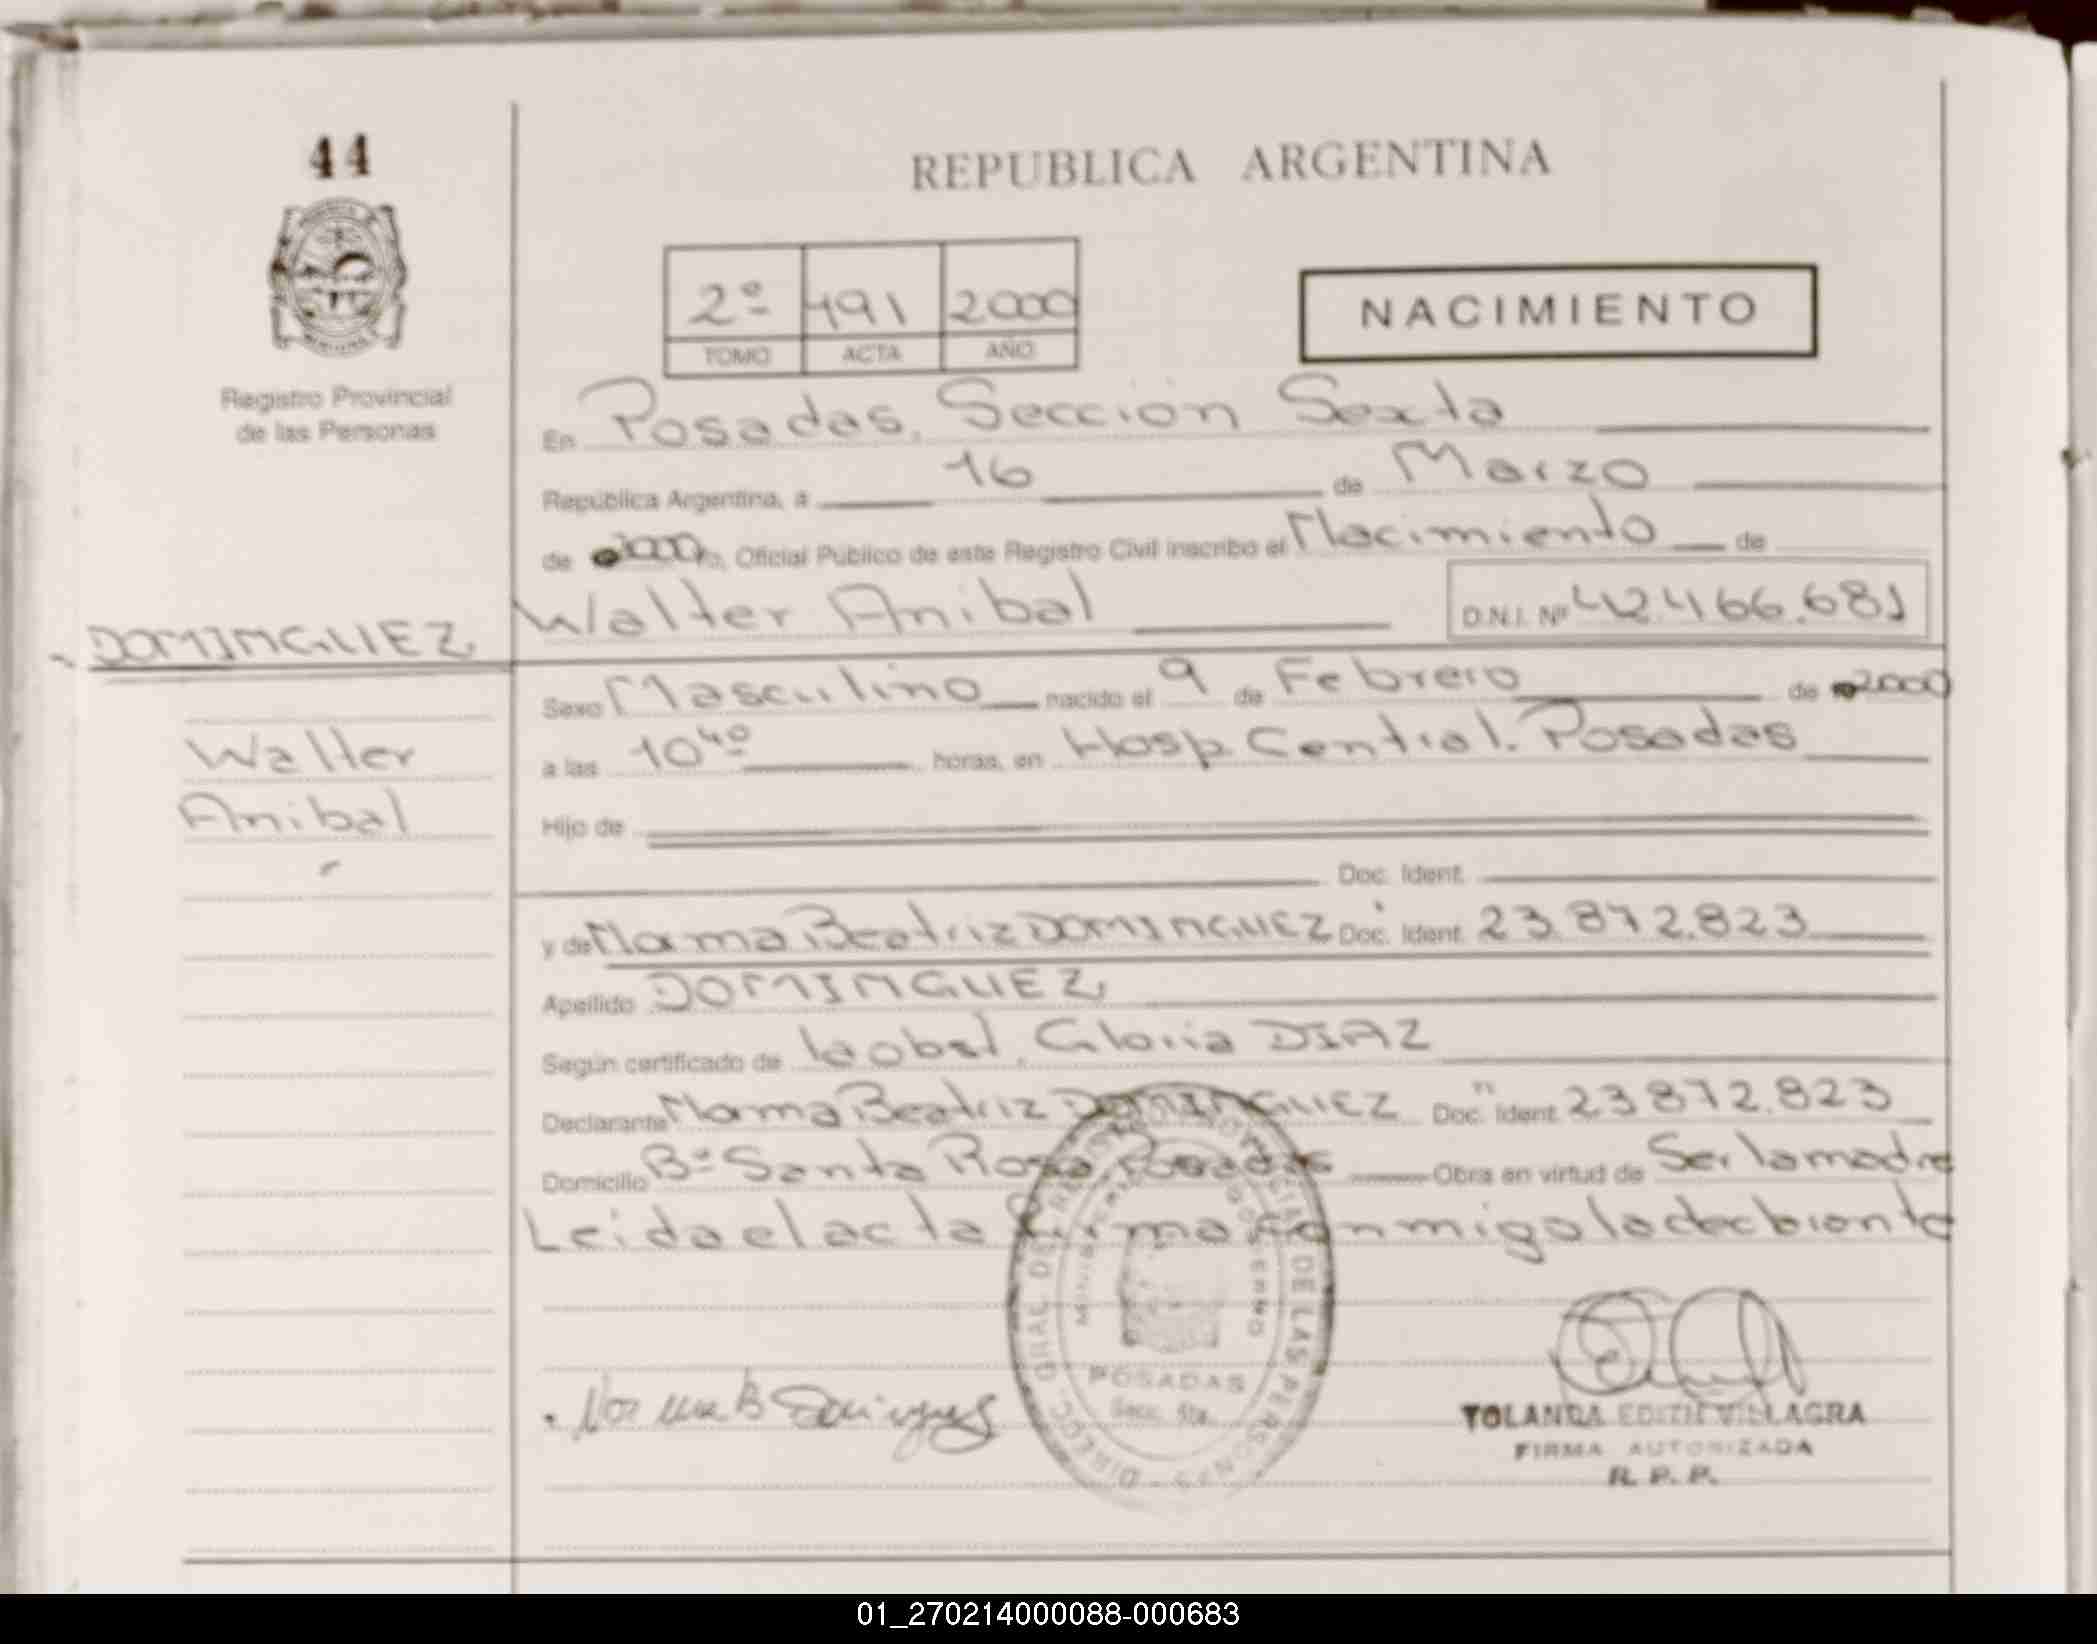 44
REPUBLICA ARGENTINA
2º 191 2000
TOMO ACTA AÑO
NACIMIENTO
Registro Provincial
de las Personas
En Posadas, Sección Sexta
República Argentina, a 16 de Marzo
de 2000, Oficial Público de este Registro Civil inscribo el Nacimiento de
DOMINGUEZ, Walter Anibal D.N.I. Nº 42.466.681
Sexo Masculino nacido el 9 de Febrero de 2000
Walter
a las 10 40 horas, en Hosp. Central. Posadas
Anibal
Hijo de
Doc. Ident.
y de Norma Beatriz DOMINGUEZ Doc. Ident. 23.872.823
Apellido DOMINGUEZ,
Según certificado de la obst. Gloria DIAZ
Declarante Norma Beatriz DOMINGUEZ Doc. Ident. 23.872.823
Domicilio Bº Santa Rosa Posadas Obra en virtud de Ser la madre
Leida el acta firma conmigo la declarante
DIRECC. GRAL. DE REGISTRO PROVINCIAL DE LAS PERSONAS
MINISTERIO GOBIERNO
POSADAS
Secc. 6ta.
Norma B Dominguez
YOLANDA EDITH VILLAGRA
FIRMA AUTORIZADA
R. P. P.
01_270214000088-000683